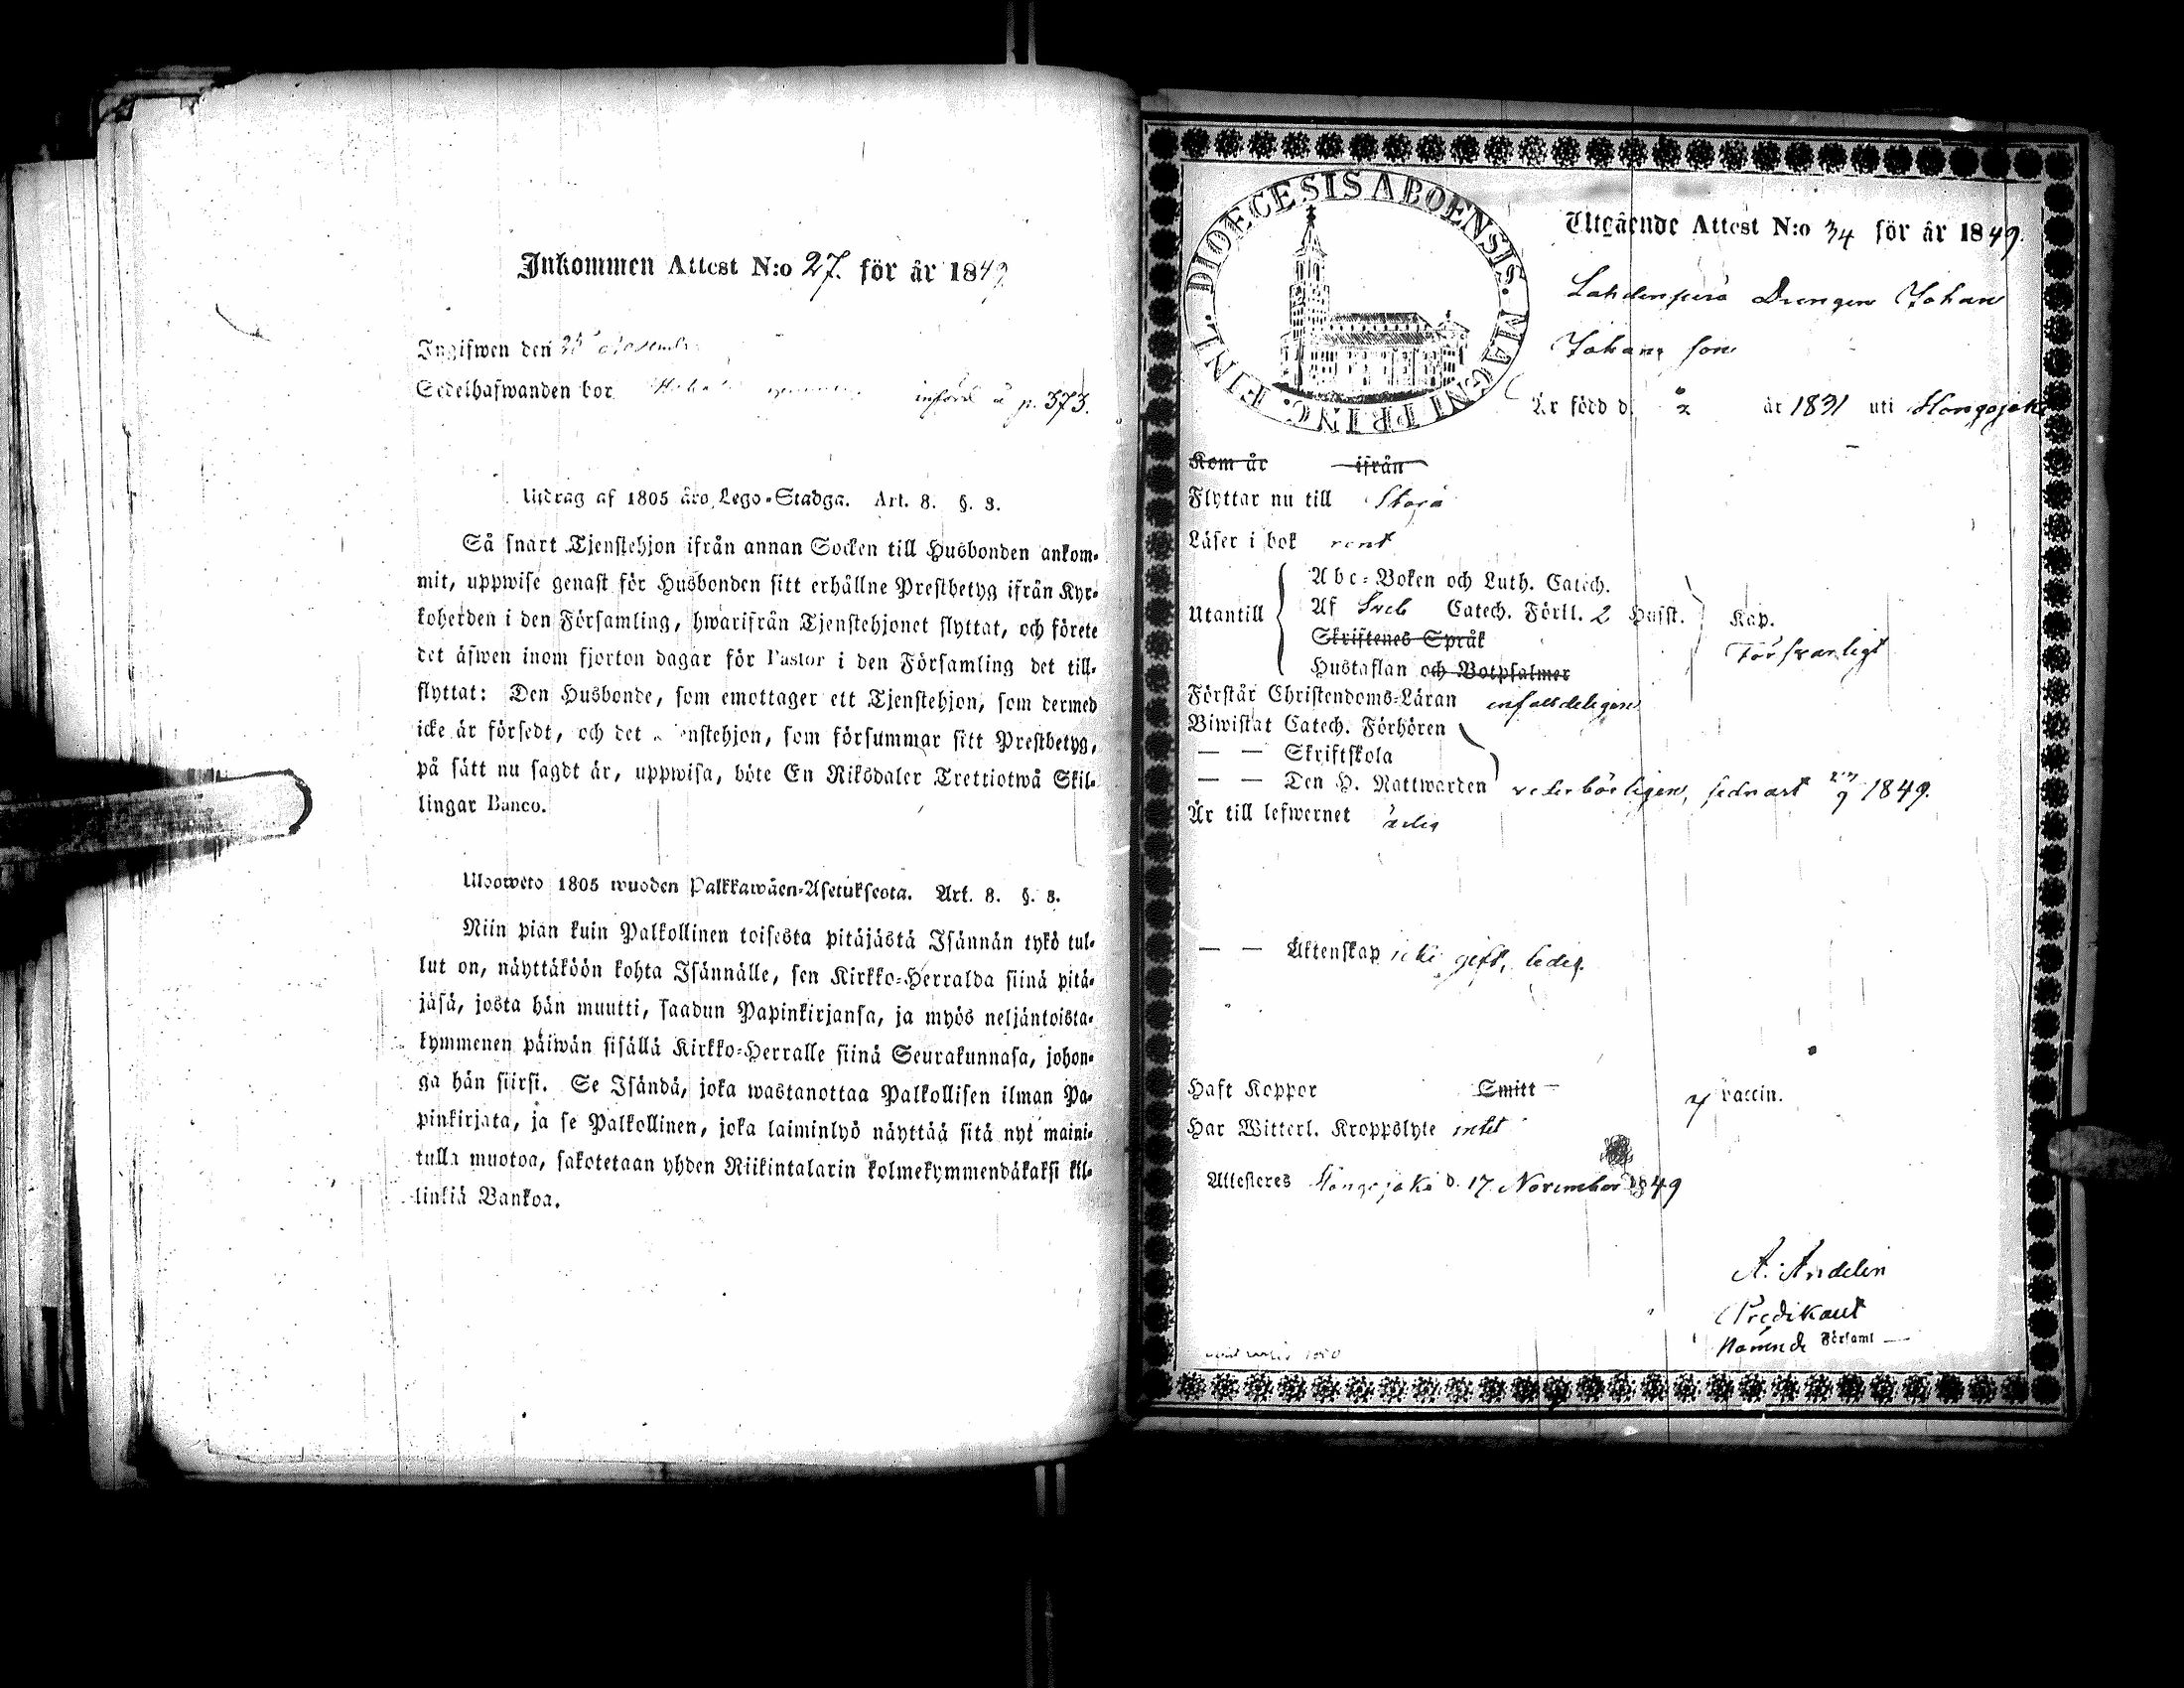 Inkommen Attest N:o 27. för år 1849
Ingifwen den November
Sedelhafwanden bor införd å p. 373.
Utdrag af 1805 års Lego-Stadga. Art. 8. §. 3.
Så snart Tjenstehjon ifrån annan Socken till Husbonden ankom-
mit, uppwise genast för Husbonden sitt erhållne Prestbetyg ifrån Kyr-
koherden i den Församling, hwarifrån Tjenstehjonet flyttat, och förete
det äfwen inom fjorton dagar för Pastor i den Församling det till-
flyttat: Den Husbonde, som emottager ett Tjenstehjon, som dermed
icke är försedt, och det Tjenstehjon, som försummar sitt Prestbetyg,
på sätt nu sagdt är, uppwisa, böte En Riksdaler Trettiotwå Skil-
lingar Banco.
Ulosweto 1805 wuoden Palkkawäen-Asetuksesta. Art. 8. §. 3.
Niin pian kuin Palkollinen toisesta pitäjästä Isännän tykö tul-
lut on, näyttäköön kohta Isännälle, sen Kirkko-Herralda siinä pitä-
jäsä, josta hän muutti, saadun Papinkirjansa, ja myös neljäntoista-
kymmenen päiwän sisällä Kirkko-Herralle siinä Seurakunnasa, johon-
ga hän siirsi. Se Isändä, joka wastanottaa Palkollisen ilman Pa-
pinkirjata, ja se Palkollinen, joka laiminlyö näyttää sitä nyt maini-
tulla muotoa, sakotetaan yhden Riikintalarin kolmekymmendäkaksi kil-
linkiä Bankoa.
DIOECESIS ABOENSIS. MAGNI PRINC. FINL.
Utgående Attest N:o 34 för år 1849.
Lahdenperä Drengen Johan
Johans son
Är född d. år 1831 uti Hongojoki
Kom år ifrån
Flyttar nu till Storå
Läser i bok rent
Abc-Boken och Luth. Catech.
Utantill Af Sveb Catech. Förkl. 2 Hufst. Kap.
Skriftenes Språk Försvarligt
Hustaflan och Botpsalmer
Förstår Christendoms-Läran enfaldeligen
Biwistat Catech. Förhören
— — Skriftskola
— — Den H. Nattwarden vederbörligen, sednast 1849.
Är till lefwernet ärlig
— — Äktenskap icke gift, ledig.
Haft Koppor Smitt vaccin.
Har Witterl. Kroppslyte intet
Attesteras Hongojoki d. 17 November 1849
A. Andelin
Predikant
Församl